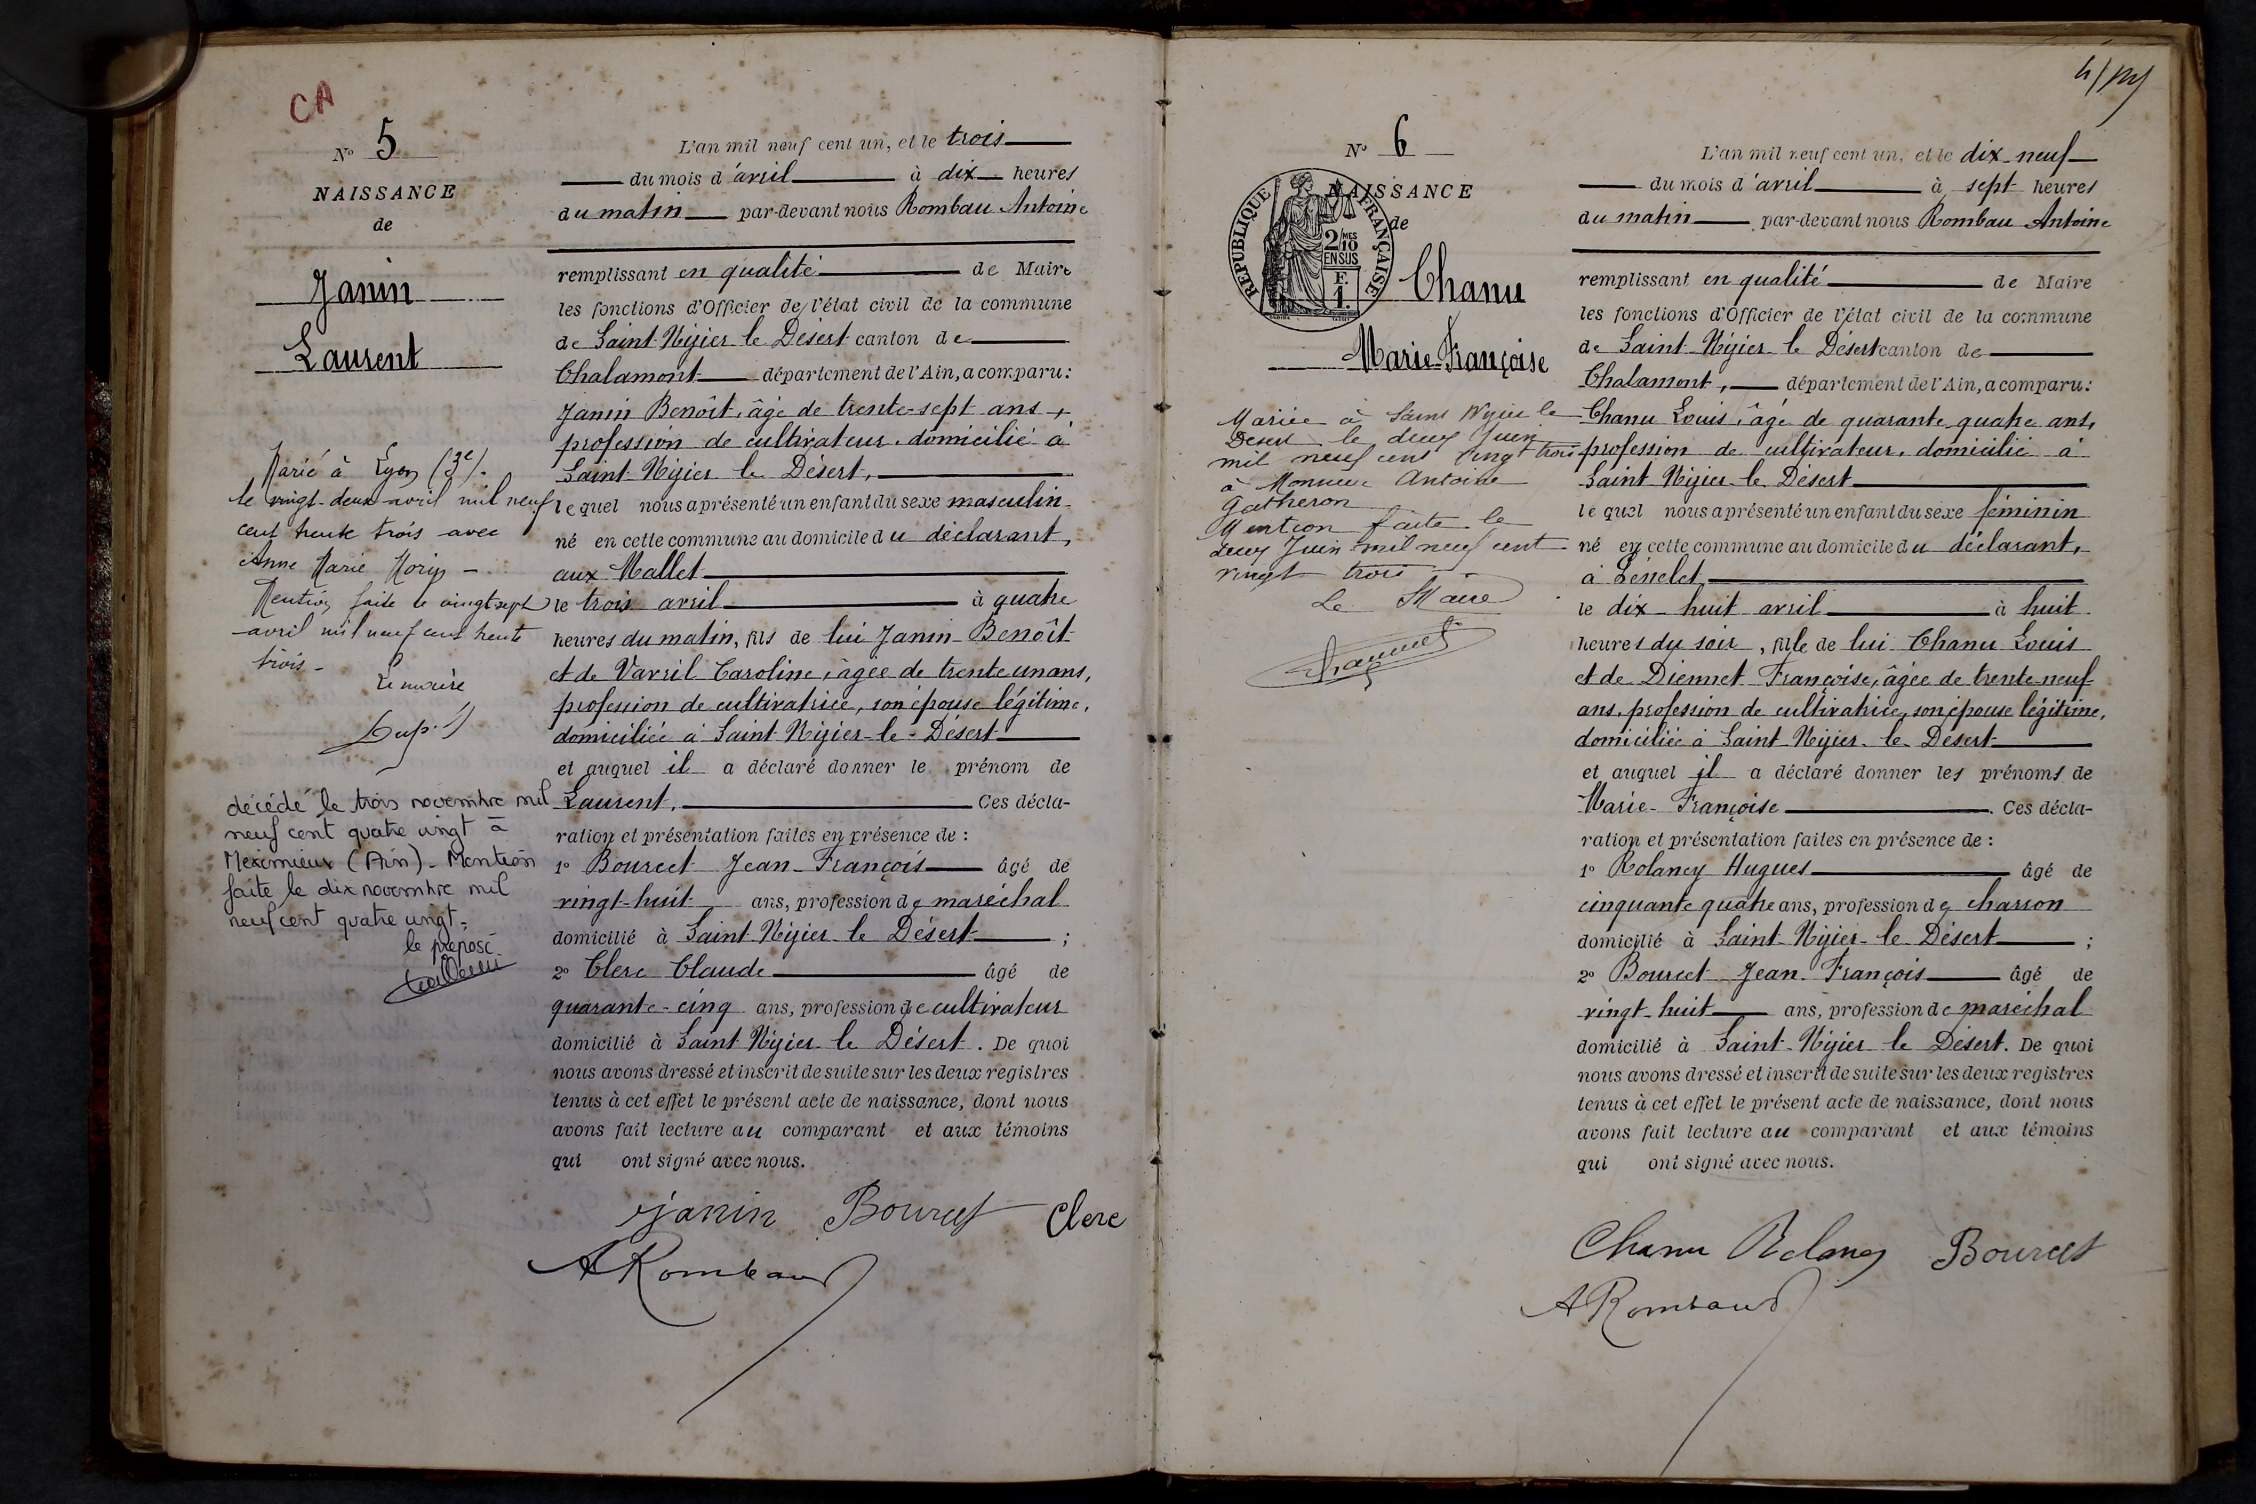 CA
N° 5
NAISSANCE
de
Janin
Laurent
Marié à Lyon (3e).
le vingt-deux avril mil neuf
cent trente trois avec
Anne Marie Morin -
Mention faite le vingt sept
avril mil neuf cent trente
trois -
Le maire
décédé le trois novembre mil
neuf cent quatre vingt à
Meximieux (Ain) - Mention
faite le dix novembre mil
neuf cent quatre vingt -
le préposé
L'an mil neuf cent un, et le trois
du mois d'avril à dix heures
du matin par-devant nous Rombau Antoine
remplissant en qualité de Maire
les fonctions d'Officier de l'état civil de la commune
de Saint-Nizier le Désert canton de
Chalamont département de l'Ain, a comparu :
Janin Benoît, âgé de trente-sept ans,
profession de cultivateur, domicilié à
Saint-Nizier le Désert,
lequel nous a présenté un enfant du sexe masculin
né en cette commune au domicile du déclarant,
aux Mallet
le trois avril à quatre
heures du matin, fils de lui Janin Benoît
et de Vavril Caroline, âgée de trente un ans,
profession de cultivatrice, son épouse légitime,
domiciliée à Saint-Nizier-le-Désert
et auquel il a déclaré donner le prénom de
Laurent. Ces décla-
ration et présentation faites en présence de :
1° Bourcet Jean-François âgé de
vingt-huit ans, profession de maréchal
domicilié à Saint-Nizier le Désert ;
2° Clerc Claude âgé de
quarante-cinq ans, profession de cultivateur
domicilié à Saint Nizier le Désert. De quoi
nous avons dressé et inscrit de suite sur les deux registres
tenus à cet effet le présent acte de naissance, dont nous
avons fait lecture au comparant et aux témoins
qui ont signé avec nous.
Janin Bourcet Clerc
A Rombaud
N° 6
NAISSANCE
de
RÉPUBLIQUE FRANÇAISE
2/10 MES
EN SUS
F.
1.
Chanu
Marie-Françoise
Mariée à Saint Nizier le
Désert le deux Juin
mil neuf cent vingt trois
à Monsieur Antoine
Gatheron
Mention faite le
deux Juin mil neuf cent
vingt trois
Le Maire
L'an mil neuf cent un, et le dix-neuf
du mois d'avril à sept heures
du matin par-devant nous Rombau Antoine
remplissant en qualité de Maire
les fonctions d'Officier de l'état civil de la commune
de Saint-Nizier le Désert canton de
Chalamont, département de l'Ain, a comparu :
Chanu Louis, âgé de quarante quatre ans,
profession de cultivateur, domicilié à
Saint Nizier le Désert
lequel nous a présenté un enfant du sexe féminin
né en cette commune au domicile du déclarant,
à
le dix-huit avril à huit
heures du soir, fille de lui Chanu Louis
et de Diennet Françoise, âgée de trente neuf
ans, profession de cultivatrice, son épouse légitime,
domiciliée à Saint-Nizier le Désert
et auquel il a déclaré donner les prénoms de
Marie-Françoise. Ces décla-
ration et présentation faites en présence de :
1° Rolancy Hugues âgé de
cinquante quatre ans, profession de charron
domicilié à Saint-Nizier-le Désert ;
2° Bourcet Jean-François âgé de
vingt-huit ans, profession de maréchal
domicilié à Saint-Nizier le Désert. De quoi
nous avons dressé et inscrit de suite sur les deux registres
tenus à cet effet le présent acte de naissance, dont nous
avons fait lecture au comparant et aux témoins
qui ont signé avec nous.
Chanu Rolancy Bourcet
A Rombaud